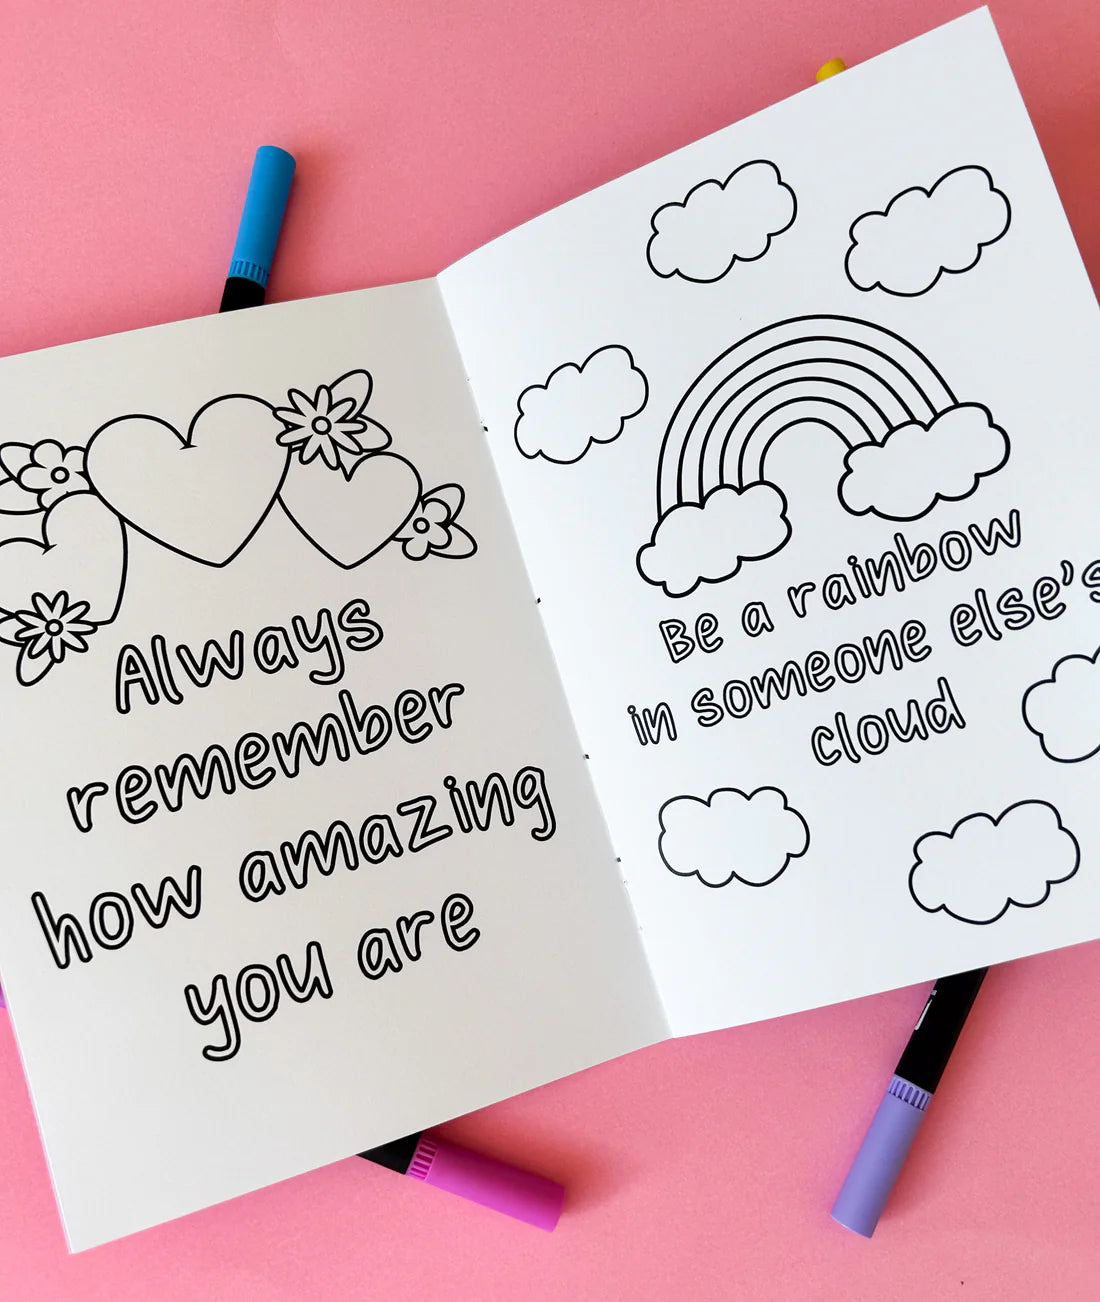 Always
remember
how amazing
you are
Be a rainbow
in someone else's
cloud